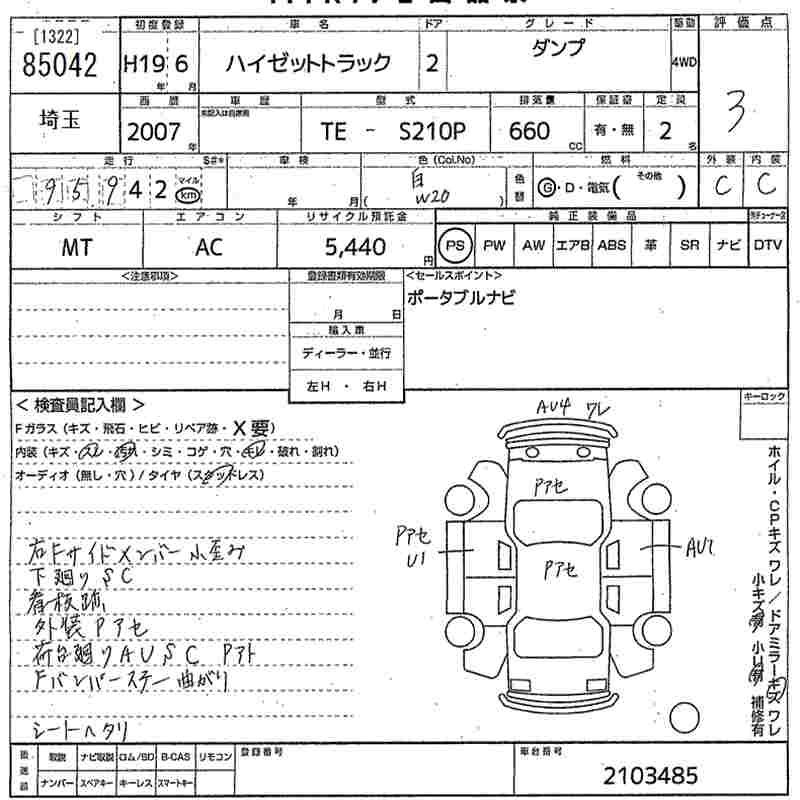 [1322]
85042
初度登録
車名
ドア
グレード
駆動
評価点
H19 6
年 月
ハイゼットトラック
2
ダンプ
4WD
3
埼玉
西暦
車歴
未記入は自家用
型式
排気量
保証書
定員
2007
年
TE - S210P
660
CC
有・無
2
名
走行
S#*
車検
色(Col.No)
燃料
外装
内装
95942
マイル
km
年 月
白
W20
( )
色替
G・D・電気( その他 )
C
C
シフト
エアコン
リサイクル預託金
純正装備品
MT
AC
5,440
円
PS
PW
AW
エアB
ABS
革
SR
ナビ
DTV
<注意事項>
登録書類有効期限
<セールスポイント>
月 日
ポータブルナビ
輸入車
ディーラー・並行
左H ・ 右H
< 検査員記入欄 >
キーロック
Fガラス(キズ・飛石・ヒビ・リペア跡・X要)
内装(キズ・スレ・汚れ・シミ・コゲ・穴・モレ・破れ・割れ)
オーディオ(無し・穴)/タイヤ(スタッドレス)
右Fサイドメンバー小歪み
下廻りSC
看板跡
外装Pアセ
荷台廻りAUSC Pアト
Fバンパーステー曲がり
シートヘタリ
AU4 ワレ
Pアセ
Pアセ
U1
Pアセ
AU1
ホイル・CPキズ ワレ/ドアミラーキズ ワレ
補修有
後送品
取説
ナビ取説
ロム/SD
B-CAS
リモコン
ナンバー
スペアキー
キーレス
スマートキー
登録番号
車台番号
2103485